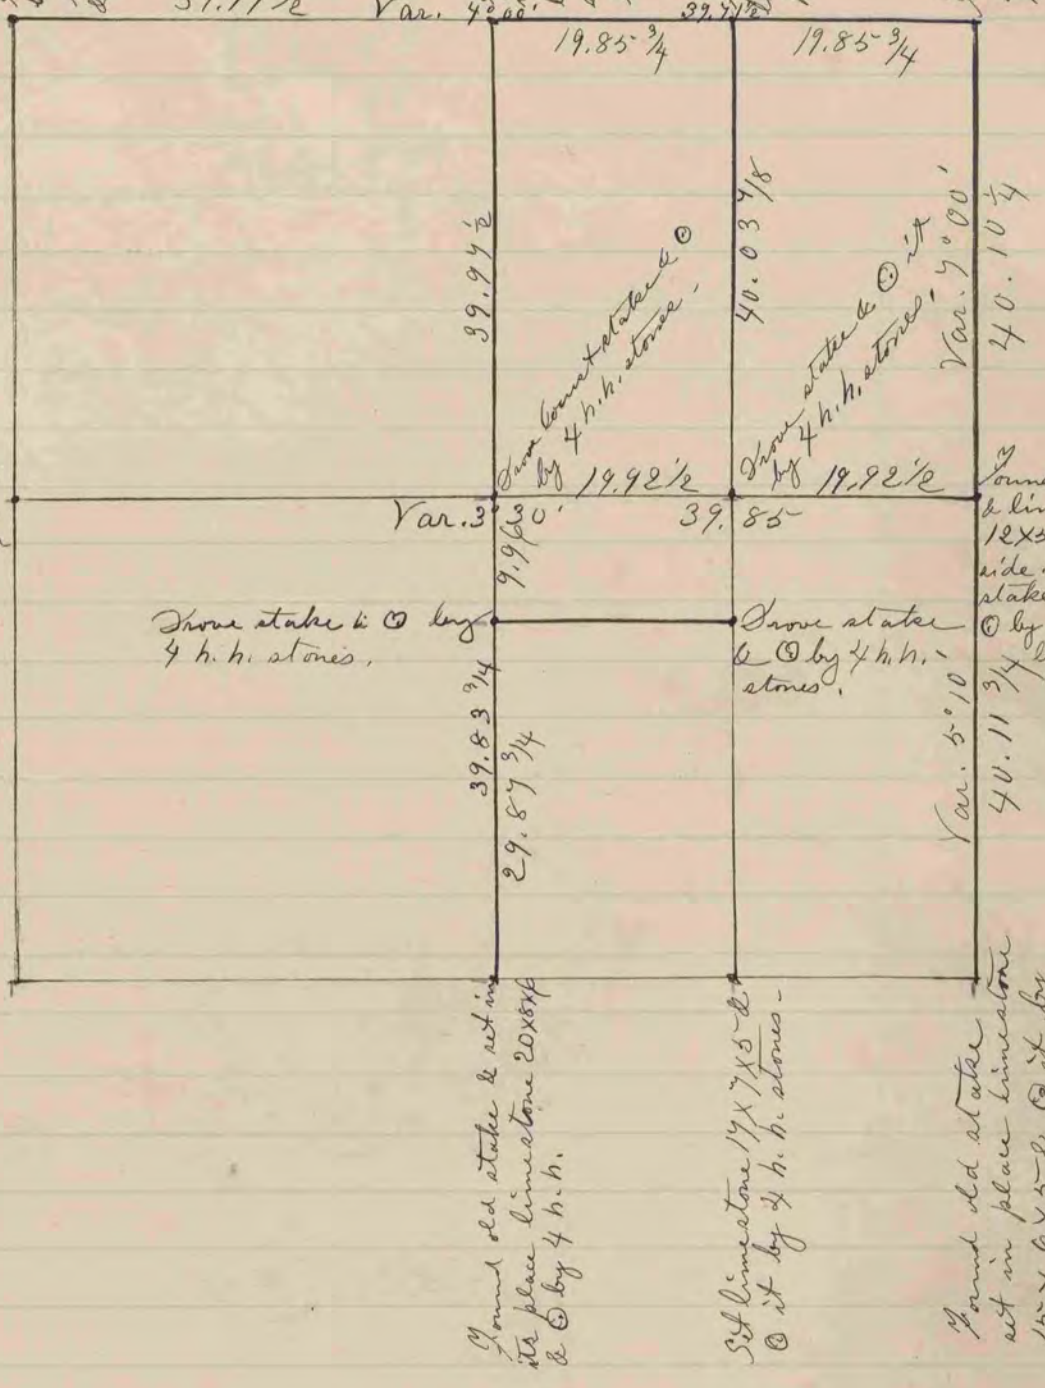 Var. 4°00' 39.71½
19.85 ¾ 19.85 ¾
39.97 ½
40.03 7/8
Var. 7°00'
40.10 ¼
Drove stake & ⊙
by 4 h.h. stones.
Drove stake & ⊙ it
by 4 h.h. stones.
19.92 ½ 19.92 ½
Var. 3°30' 39.85
9.96
12X5
side
stake
⊙ by
Drove stake & ⊙ by
4 h.h. stones.
Drove stake
& ⊙ by 4 h.h.
stones.
39.83 ¾
29.87 ¾
Var. 5°10'
40.11 ¾
Found old stake & set in
its place limestone 20X8X6
& ⊙ by 4 h.h.
Set limestone 17X7X5 &
⊙ it by 4 h.h. stones.
Found old stake
set in place limestone
15X6X5 & ⊙ it by